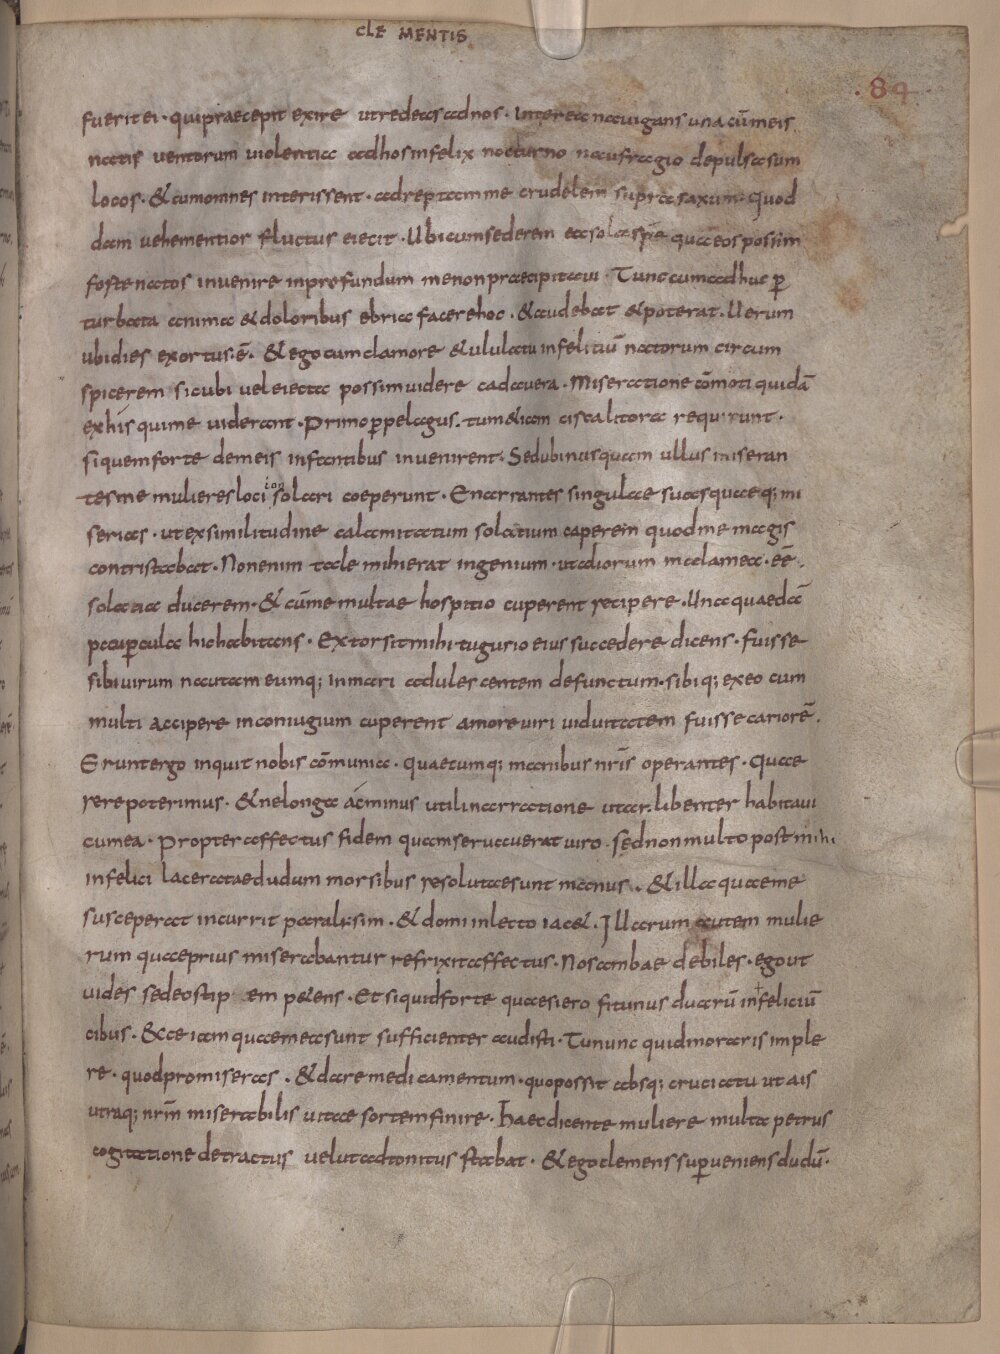 CLEMENTIS
· 84
fuerit ei · qui praecepit exire ut redeas ad nos · Interea navigans una cū meis
natis ventorum violentia ad hos infelix nocturno naufragio depulsa sum
locos · & cum omnes interissent · adreptam me crudelem supra saxum · quod
dam vehementior fluctus eiecit · Ubi cum sederem ea sola spē qua eos possim
foste natos invenire in profundum me non praecipitavi · Tunc cum adhuc ꝑ
turbata anima & doloribus ebria facere hoc · & audebat & poterat · Uerum
ubi dies exortus · ē · & ego cum clamore & ululatu infelitiū natorum circum
spicerem sicubi vel eiecta possim videre cadavera · Miseratione cōmoti quidā
ex his qui me viderant · Primo ꝑ pelagus · tum & iam cis ta litora requirunt ·
si quem forte de meis infantibus invenirent · Sed ubi nusquam ullus miseran
tes me mulieres loci ion solari coeperunt · Enarrantes singulae suas quaeq; mi
serias · ut ex similitudine calamitatum solatium caperem quod me magis
contristabat · Non enim tale mihi erat ingenium · ut aliorum mala mea · eē ·
solatia ducerem · & cū me multae hospitio cuperent recipere · Una quaedā
paupcula hic habitans · Extorsit mihi tugurio eius succedere dicens · fuisse
sibi virum nautam eumq; in mari adulescentem defunctum · sibiq; ex eo cum
multi accipere in coniugium cuperent amore viri viduitatem fuisse cariorē ·
Erunt ergo inquit nobis cōmunia · quaecumq; manibus nr̄is operantes · quae
rere poterimus · & ne longa ac minus utili narratione utar · libenter habitavi
cum ea · Propter affectus fidem quam servaverat viro · sed non multo post mihi
infelici laceratae dudum morsibus resolutae sunt manus · & illa quae me
susceperat incurrit paralisim · & domi in lecto iac& · Illarum autem mulie
rum quae prius miserabantur refrixit affectus · Nos ambae debiles · ego ut
vides sedeo stip em petens · Et si quid forte quaesiero fit unus duarū infeliciū
cibus · & ecce iam quae mea sunt sufficienter audisti · Tu nunc quid moraris imple
re · quod promiseras · & dare medicamentum · quo possit absq; cruciatu ut ais
utraq; nr̄m miserabilis vitae sortem finire · Haec dicente muliere multa petrus
cogitatione detractus velut adtonitus stabat · & ego clemens suꝑveniens dudū ·